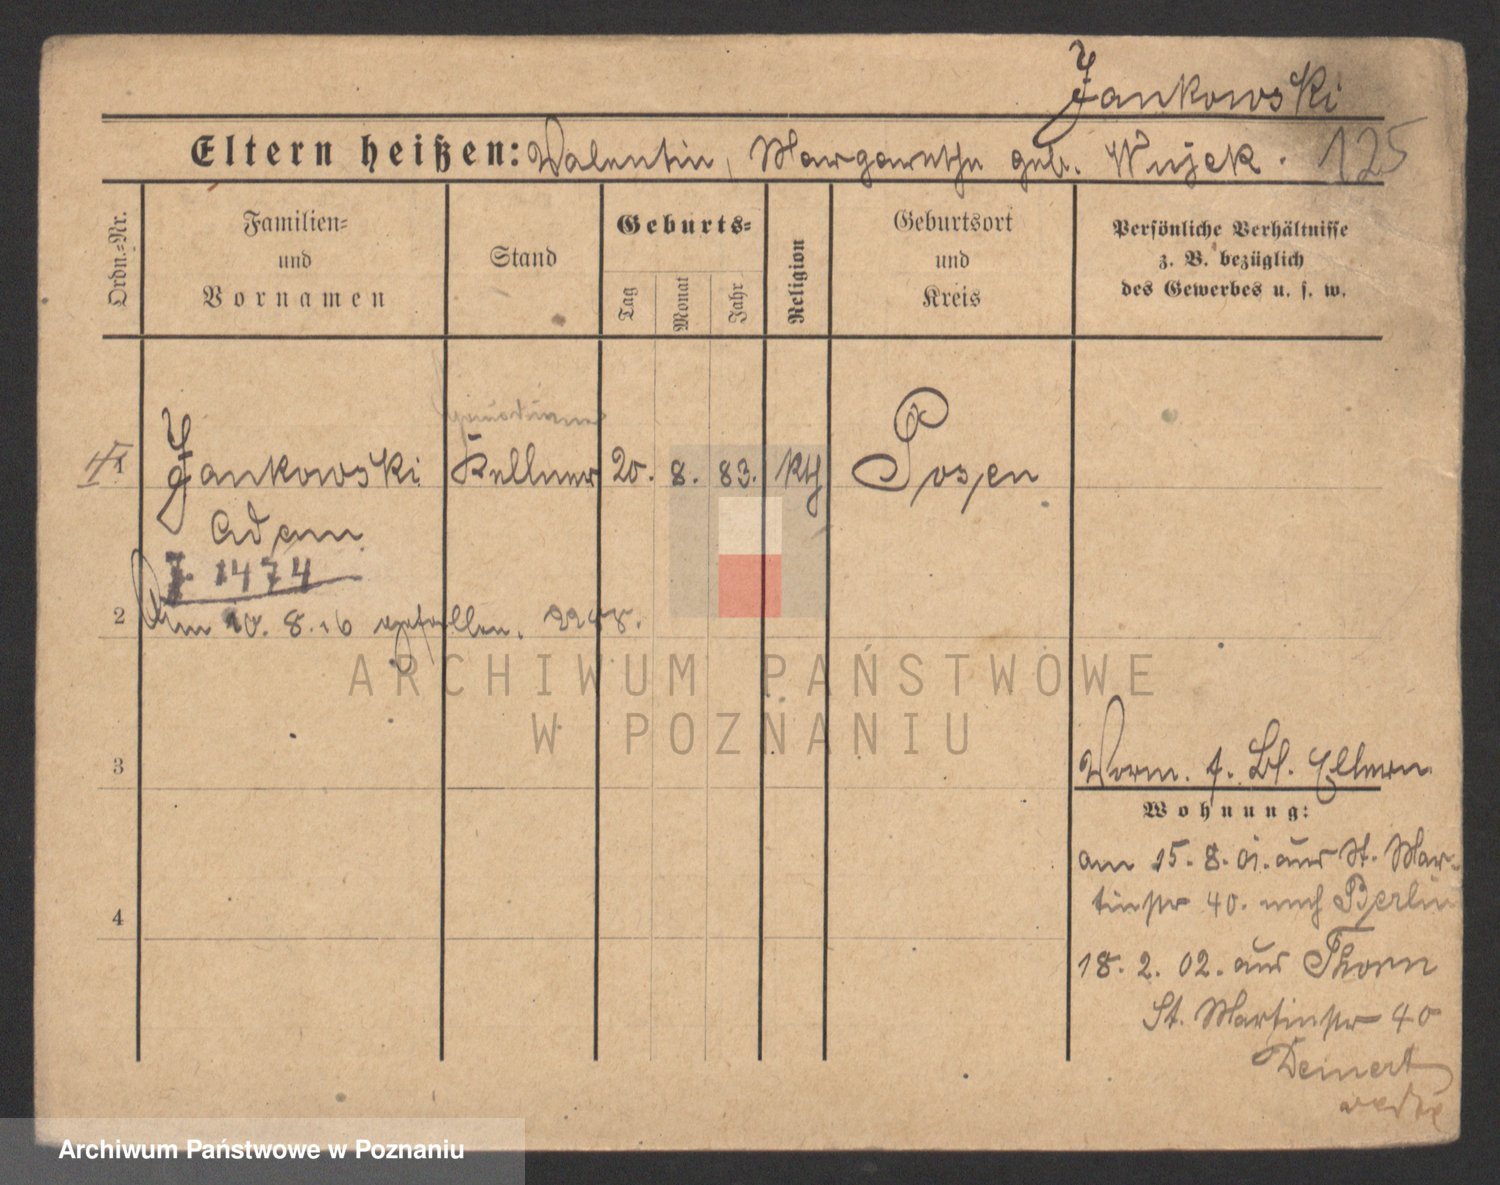 Jankowski
Eltern heißen: Valentin, Margarethe geb. Wujek. 125
Ordn.-Nr.
Familien-
und
Vornamen
Stand
Geburts-
Tag
Monat
Jahr
Religion
Geburtsort
und
Kreis
Persönliche Verhältnisse
z. B. bezüglich
des Gewerbes u. s. w.
1 Jankowski Kellner 20. 8. 83. kth Posen
Adam
J. 1474
2 Am 10. 8. 16 gefallen.
ARCHIWUM PAŃSTWOWE
W POZNANIU
3
Vorm. f. Bl. Eltern
Wohnung:
am 15. 8. 01. aus St. Mar-
tinstr 40. nach Berlin
4
18. 2. 02. aus Thorn
St. Martinstr 40
Deinert
Archiwum Państwowe w Poznaniu